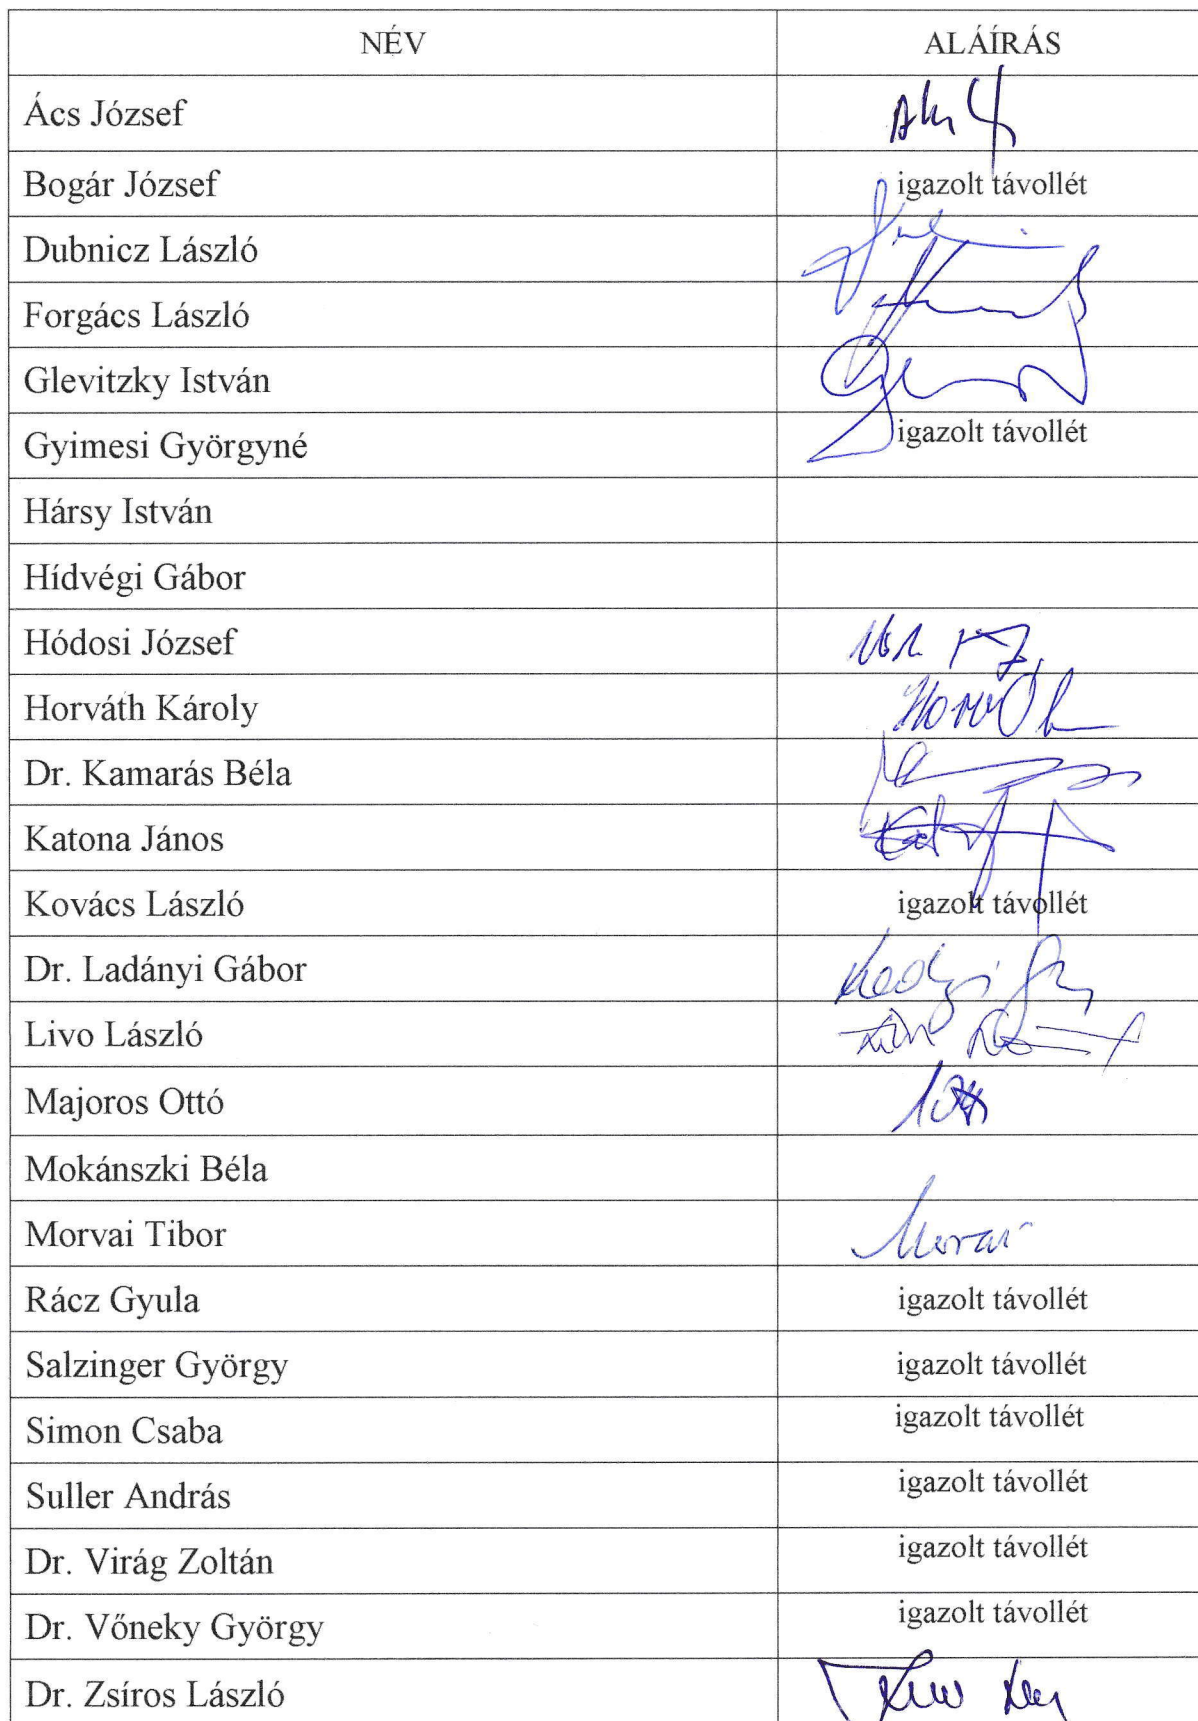 NÉV ALÁÍRÁS
Ács József
Bogár József igazolt távollét
Dubnicz László
Forgács László
Glevitzky István
Gyimesi Györgyné igazolt távollét
Hársy István
Hídvégi Gábor
Hódosi József
Horváth Károly
Dr. Kamarás Béla
Katona János
Kovács László igazolt távollét
Dr. Ladányi Gábor
Livo László
Majoros Ottó
Mokánszki Béla
Morvai Tibor
Rácz Gyula igazolt távollét
Salzinger György igazolt távollét
Simon Csaba igazolt távollét
Suller András igazolt távollét
Dr. Virág Zoltán igazolt távollét
Dr. Vőneky György igazolt távollét
Dr. Zsíros László